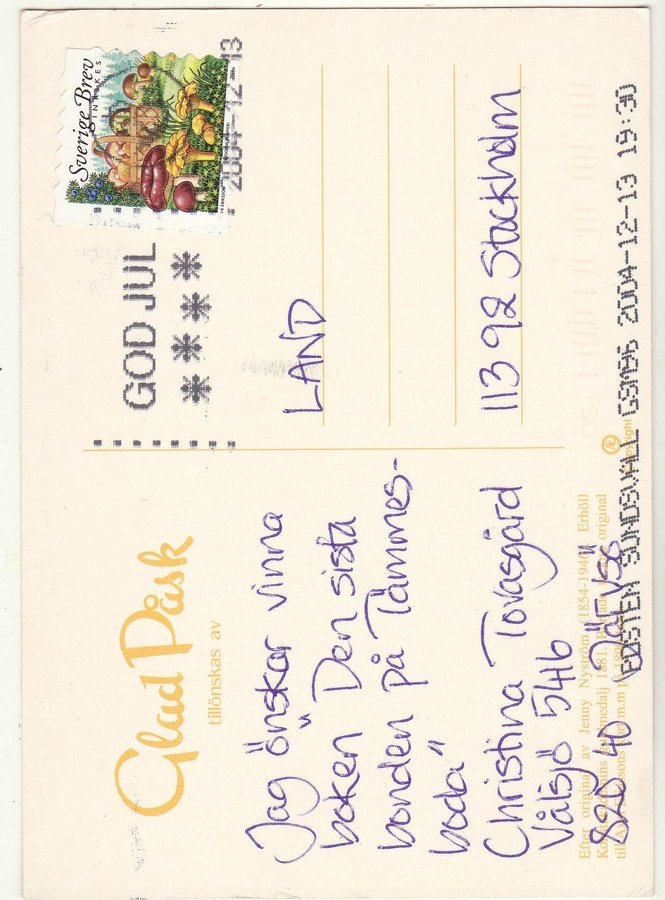 Glad Påsk
tillönskas av
Jag önskar vinna
boken "Den sista
bonden på Tämmes-
boda"
Christina Tovasgård
Vålsjö 546
820 40 JÄRVSÖ
Efter original av Jenny Nyström (1854-1946). Erhöll
medalj 1881.
original
till
GOD JUL
Sverige Brev
INRIKES
2004-12-13
LAND
113 92 Stockholm
POSTEN SUNDSVALL GSM96 2004-12-13 19:30